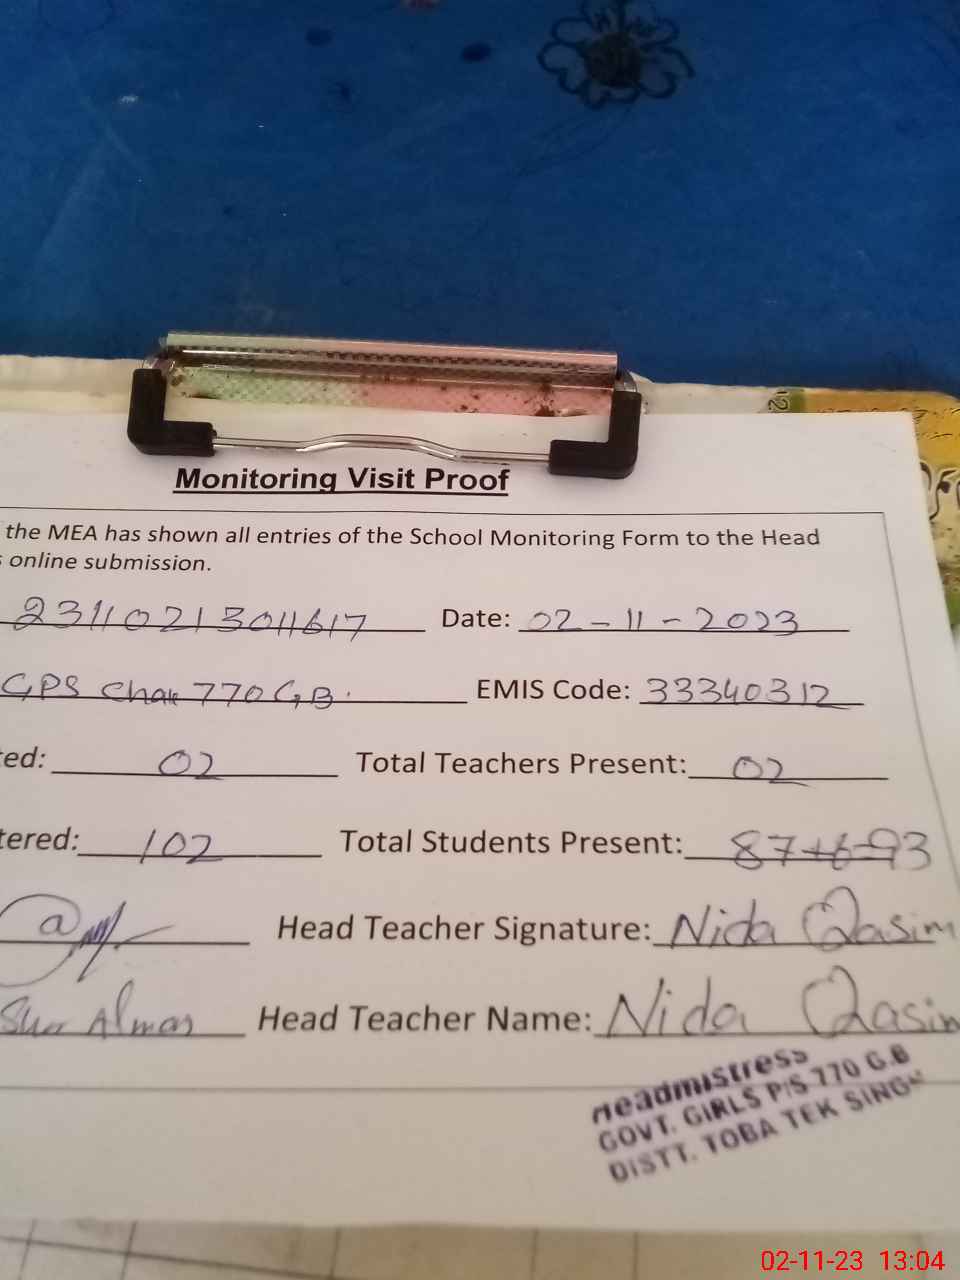 Monitoring Visit Proof
the MEA has shown all entries of the School Monitoring Form to the Head
online submission.
23110213011617 Date: 02-11-2023
GPS Chak 770 GB. EMIS Code: 33340312
ted: 02 Total Teachers Present: 02
tered: 102 Total Students Present: 87+6=93
Head Teacher Signature: Nida Qasim
Sher Almas Head Teacher Name: Nida Qasim
Headmistress
GOVT. GIRLS P/S 770 G.B
DISTT. TOBA TEK SINGH
02-11-23 13:04